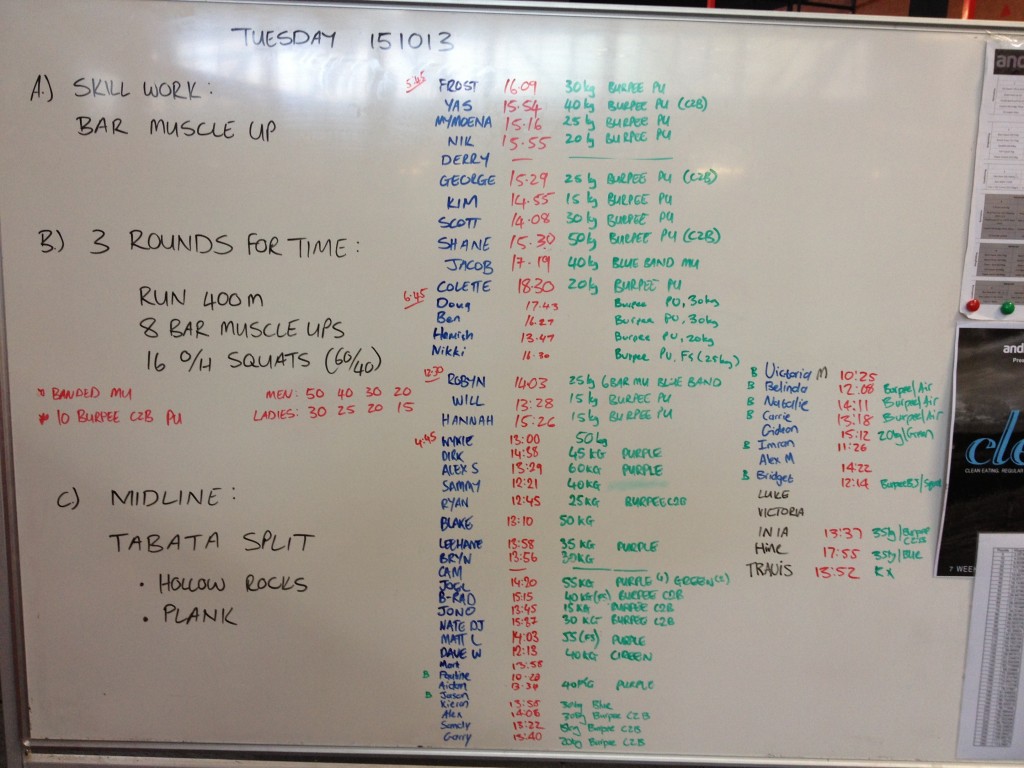 TUESDAY 151013
A.) SKILL WORK:
BAR MUSCLE UP
B) 3 ROUNDS FOR TIME:
RUN 400M
8 BAR MUSCLE UPS
16 O/H SQUATS (60/40)
* BANDED MU MEN: 50 40 30 20
* 10 BURPEE C2B PU LADIES: 30 25 20 15
C) MIDLINE:
TABATA SPLIT
• HOLLOW ROCKS
• PLANK
5:45 FROST 16.09 30kg BURPEE PU
YAS 15.54 40kg BURPEE PU (C2B)
MYMOENA 15.16 25kg BURPEE PU
NIK 15.55 20kg BURPEE PU
DERRY — —
GEORGE 15.29 25kg BURPEE PU (C2B)
KIM 14.55 15kg BURPEE PU
SCOTT 14.08 30kg BURPEE PU
SHANE 15.30 50kg BURPEE PU (C2B)
JACOB 17.19 40kg BLUE BAND MU
COLETTE 18.30 20kg BURPEE PU
6.45 Doug 17.43 Burpee PU, 30kg
Ben 16.27 Burpee PU, 30kg
Hamish 13.47 Burpee PU, 20kg
Nikki 16.30 Burpee PU, FS (25kg)
12:30 ROBYN 14:03 25kg 6 BAR MU BLUE BAND
WILL 13:28 15kg BURPEE PU
HANNAH 15:26 15kg BURPEE PU
4:45 WYKIE 13:00 50kg
DIRK 14:38 45KG PURPLE
ALEX S 13:29 60KG PURPLE
SAMMY 12:21 40KG
RYAN 12:45 25KG BURPEE C2B
BLAKE 13:10 50KG
LEEHANE 13:58 35KG PURPLE
BRYN 13:56 30KG
CAM — —
JOEL 14:20 55KG PURPLE (1) GREEN (2)
B-RAD 15:15 40KG (FS) BURPEE C2B
JONO 13:45 15KG BURPEE C2B
NATE DJ 15:27 30KG BURPEE C2B
MATT L 14:03 55 (FS) PURPLE
DAVE W 12:13 40KG GREEN
Mort 13:58
B Pauline 10:28
Aidan 13:34 40KG PURPLE
B Jason
Kieran 13:55 30kg Blue
Alex 14:06 30kg Burpee C2B
Sandy 13:22 Burpee C2B
Garry 13:40 20kg Burpee C2B
B Victoria M 10:25
B Belinda 12:08 Burpee/Air
B Natalie 14:11 Burpee/Air
B Carrie 13:18 Burpee/Air
Gideon 15:12 20kg/Green
B Imran 11:26
Alex M 14:22
B Bridget 12:14
LUKE
VICTORIA
INIA 13:37 35kg/Burpee C2B
Hine 17:55 35kg/Blue
TRAVIS 13:52 RX
and
cle
CLEAN EATING. REGULAR
7 WEEK